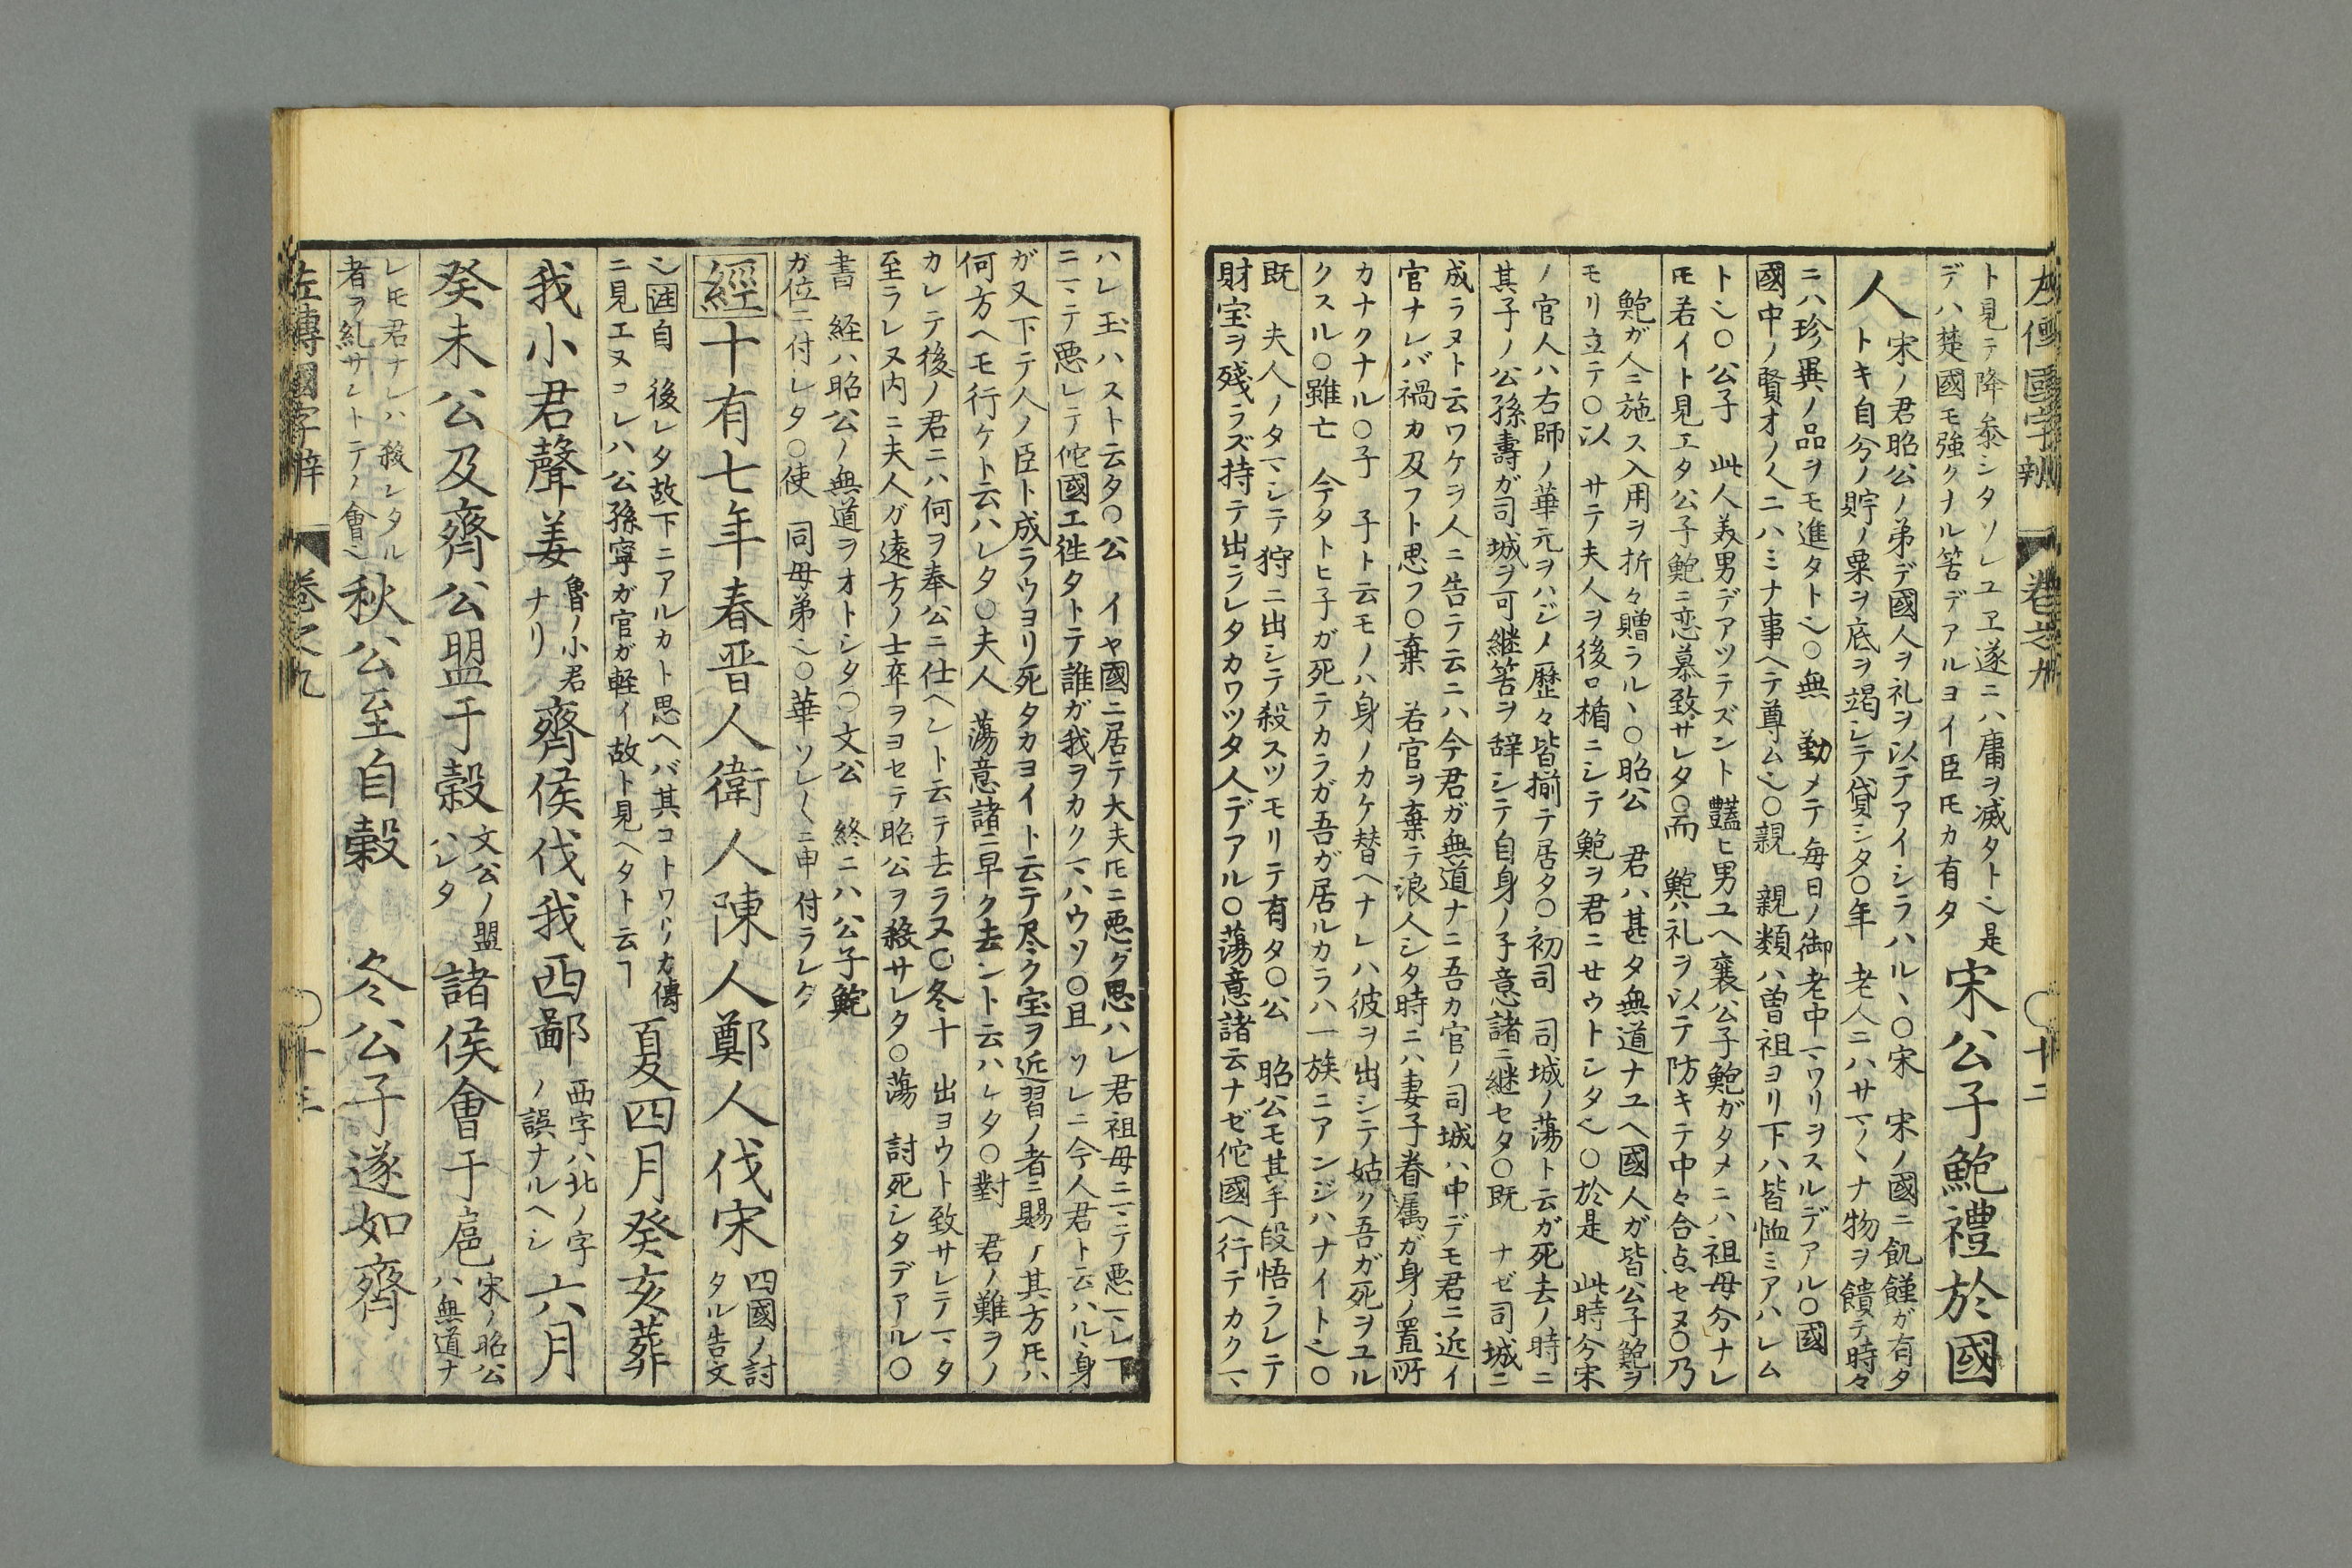 左傳國字辨 卷之九 〇十二
ト見テ降参シタソレユヱ遂ニハ庸ヲ滅タト〻是
デハ楚國モ強クナル筈デアルヨイ臣𪜈カ有タ
宋公子鮑禮於國
人
宋ノ君昭公ノ弟デ國人ヲ礼ヲ以テアイシラハル丶〇宋 宋ノ國ニ飢饉ガ有タ
トキ自分ノ貯ノ粟ヲ底ヲ竭シテ貸シタ〇年 老人ニハサマ〳〵ナ物ヲ饋テ時々
ニハ珍異ノ品ヲモ進タト〻〇無 勤メテ毎日ノ御老中マワリヲスルデアル〇國
國中ノ賢オノ人ニハミナ事ヘテ尊ム〻〇親 親類ハ曽祖ヨリ下ハ皆恤ミアハレム
ト〻〇公子 此人美男デアツテズント豔ヒ男ユヘ襄公子鮑ガタメニハ祖母分ナレ
𪜈若イト見エタ公子鮑ニ恋慕致サレタ〇而 鮑ハ礼ヲ以テ防キテ中々合点セヌ〇乃
鮑ガ人ニ施ス入用ヲ折々贈ラル丶〇昭公 君ハ甚タ無道ナユヘ國人ガ皆公子鮑ヲ
モリ立テ〇以 サテ夫人ヲ後ロ楯ニシテ鮑ヲ君ニセウトシタ〻〇於是 此時分宋
ノ官人ハ右師ノ華元ヲハジメ歴々皆揃テ居タ〇初司 司城ノ蕩ト云ガ死去ノ時ニ
其子ノ公孫壽ガ司城ヲ可継筈ヲ辞シテ自身ノ子意諸ニ継セタ〇既 ナゼ司城ニ
成ラヌト云ワケヲ人ニ告テ云ニハ今君ガ無道ナニ吾カ官ノ司城ハ中デモ君ニ近イ
官ナレバ禍カ及フト思フ〇棄 若官ヲ棄テ浪人シタ時ニハ妻子眷属ガ身ノ置所
カナクナル〇子 子ト云モノハ身ノカケ替ヘナレハ彼ヲ出シテ姑ク吾ガ死ヲユル
クスル〇雖亡 今タトヒ子ガ死テカラガ吾ガ居ルカラハ一族ニアンジハナイト〻〇
既 夫人ノタマシテ狩ニ出シテ殺スツモリテ有タ〇公 昭公モ其手段悟ラレテ
財宝ヲ殘ラズ持テ出ラレタカワツタ人デアル〇蕩意諸云ナゼ佗國ヘ行テカクマ
ハレ玉ハスト云タ〇公 イヤ國ニ居テ大夫𪜈ニ悪グ思ハレ君祖母ニマテ悪マレ下
ニマテ悪レテ佗國エ徃タトテ誰ガ我ヲカクマハウソ〇且 ソレニ今人君ト云ハル丶身
ガ又下テ人ノ臣ト成ラウヨリ死タカヨイト云テ尽ク宝ヲ近習ノ者ニ賜ノ其方𪜈ハ
何方ヘモ行ケト云ハレタ〇夫人 蕩意諸ニ早ク去ント云ハレタ〇對 君ノ難ヲノ
カレテ後ノ君ニハ何ヲ奉公ニ仕ヘント云テ去ラヌ〇冬十 出ヨウト致サレテマタ
至ラレヌ内ニ夫人ガ遠方ノ士卒ヲヨセテ昭公ヲ殺サレタ〇蕩 討死シタデアル〇
書 経ハ昭公ノ無道ヲオトシタ〇文公 終ニハ公子鮑
ガ位ニ付レタ〇使 同母弟〻〇華 ソレ〳〵ニ申付ラレタ
經十有七年春晋人衛人陳人鄭人伐宋
四國ノ討
タル告文
〻注自 後レタ故下ニアルカト思ヘバ其コトワリカ傳
ニ見エヌコレハ公孫寧ガ官ガ軽イ故ト見ヘタト云ヿ
夏四月癸亥葬
我小君聲姜
魯ノ小君
ナリ
齊侯伐我西鄙
西字ハ北ノ字
ノ誤ナルヘシ
六月
癸未公及齊公盟于穀
文公ノ盟
ハレタ
諸侯會于扈
宋ノ昭公
ハ無道ナ
レ𪜈君ナレハ殺レタル
者ヲ糺サレトテノ會〻
秋公至自穀 冬公子遂如齊
左傳國字辨 卷之九 〇十三